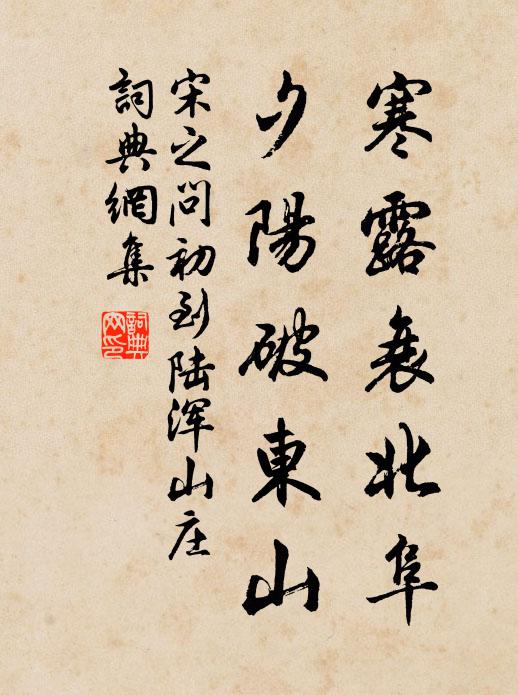 寒露衰北阜
夕陽破東山
宋之问初到陆浑山庄
詞典網集
詞典网印